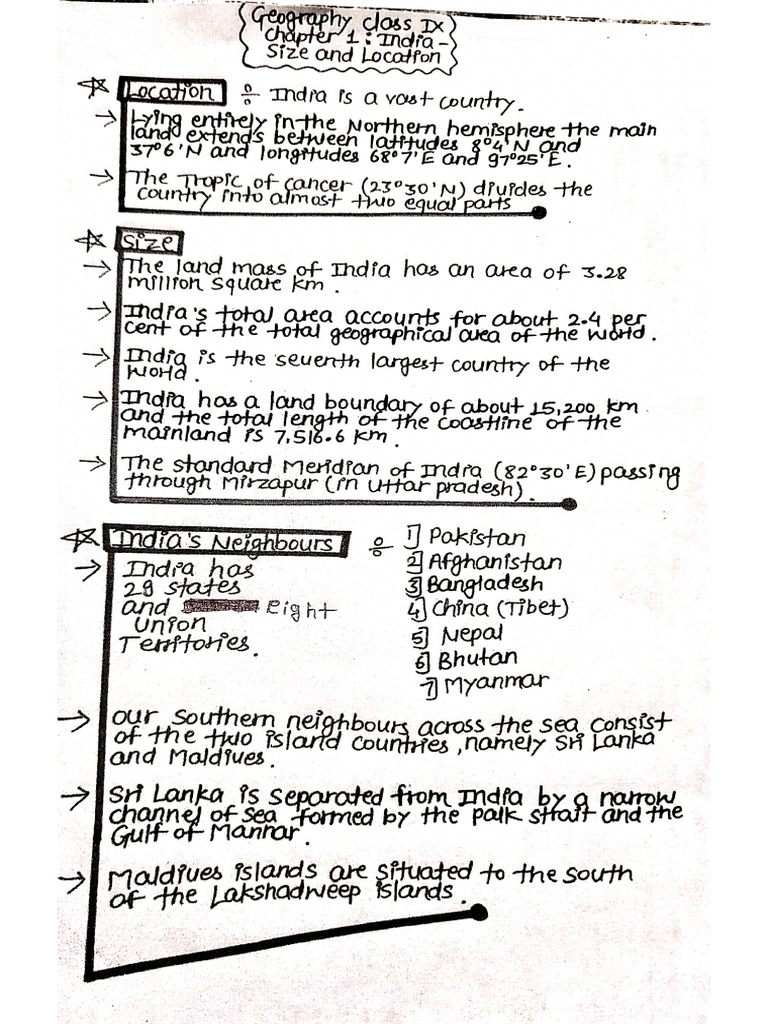 Geography class IX
chapter 1 : India -
Size and Location
Location ÷ India is a vast country.
→ Lying entirely in the Northern hemisphere the main
land extends between latitudes 8°4'N and
37°6'N and longitudes 68°7'E and 97°25'E.
→ The Tropic of cancer (23°30'N) divides the
country into almost two equal parts
Size
→ The land mass of India has an area of 3.28
million square km.
→ India's total area accounts for about 2.4 per
cent of the total geographical area of the world.
→ India is the seventh largest country of the
world.
→ India has a land boundary of about 15,200 km
and the total length of the coastline of the
mainland is 7,516.6 km.
→ The standard Meridian of India (82°30'E) passing
through Mirzapur (in Uttar pradesh).
India's Neighbours ÷
1] Pakistan
2] Afghanistan
3] Bangladesh
4] China (Tibet)
5] Nepal
6] Bhutan
7] Myanmar
→ India has
29 states
and eight
union
Territories.
→ our southern neighbours across the sea consist
of the two island countries, namely Sri Lanka
and Maldives.
→ Sri Lanka is separated from India by a narrow
channel of sea formed by the palk strait and the
Gulf of Mannar.
→ Maldives islands are situated to the south
of the Lakshadweep islands.